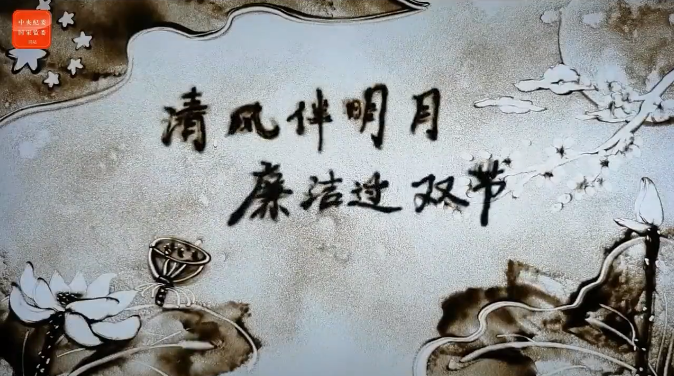 中央纪委
国家监委
网站
清风伴明月
廉洁过双节